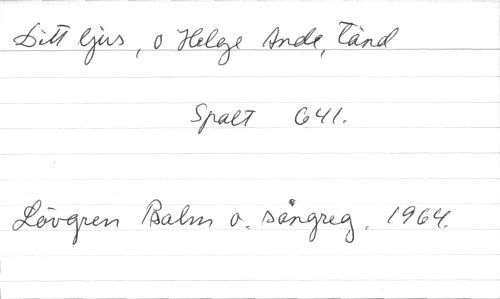 Ditt ljus, o Helge Ande, tänd
Spalt 641.
Lövgren Psalm o. sångreg. 1964.